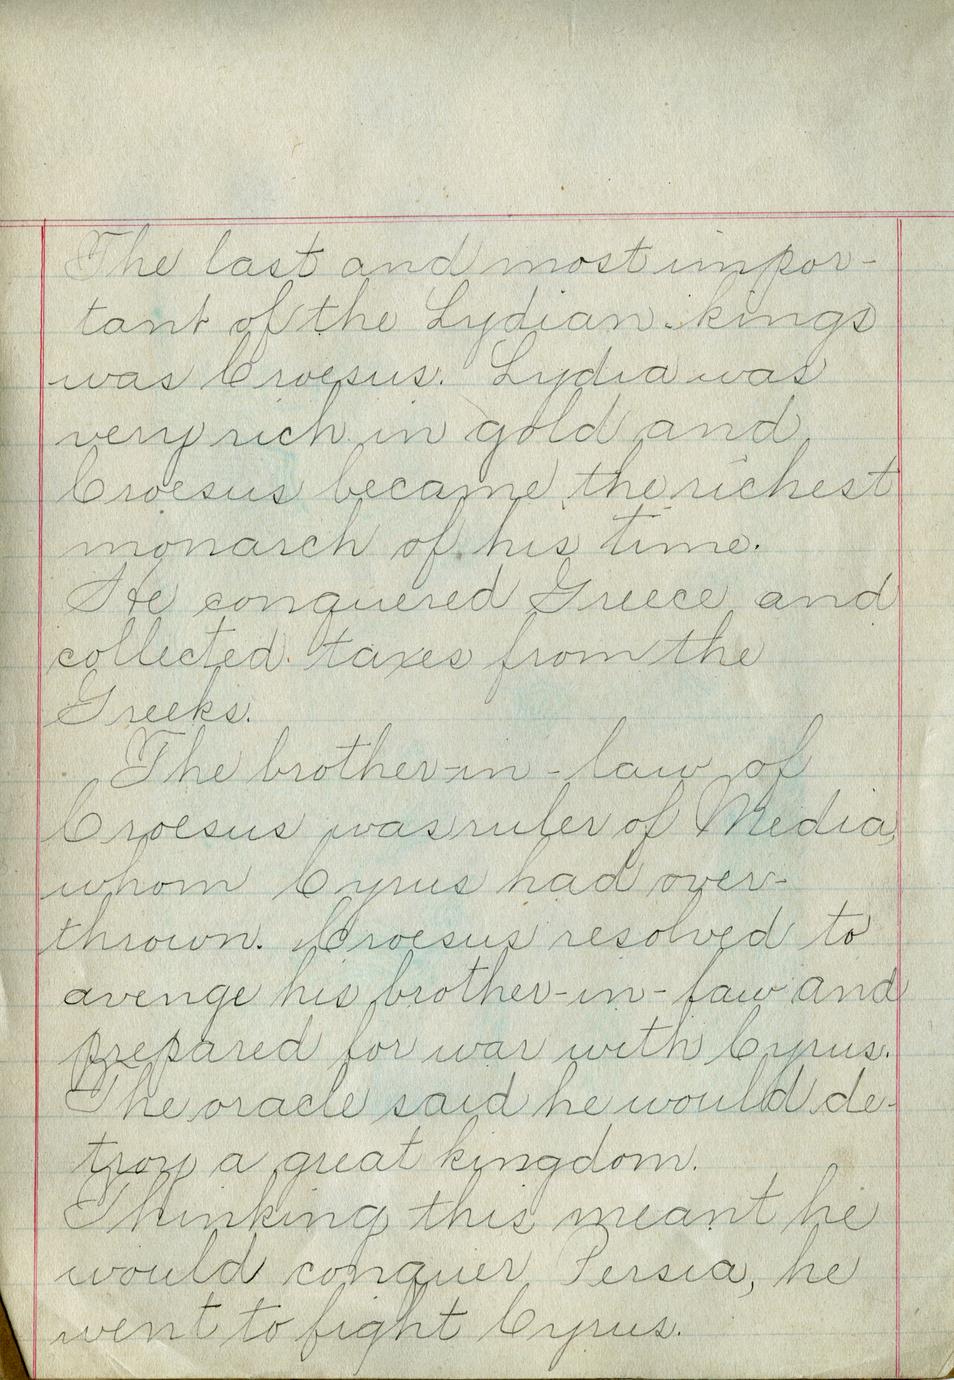 The last and most impor-
tant of the Lydian kings
was Croesus. Lydia was
very rich in gold and
Croesus became the richest
monarch of his time.
He conquered Greece and
collected taxes from the
Greeks.
The brother-in-law of
Croesus was ruler of Media,
whom Cyrus had over-
thrown. Croesus resolved to
avenge his brother-in-law and
prepared for war with Cyrus.
The oracle said he would de-
troy a great kingdom.
Thinking this meant he
would conquer Persia, he
went to fight Cyrus.